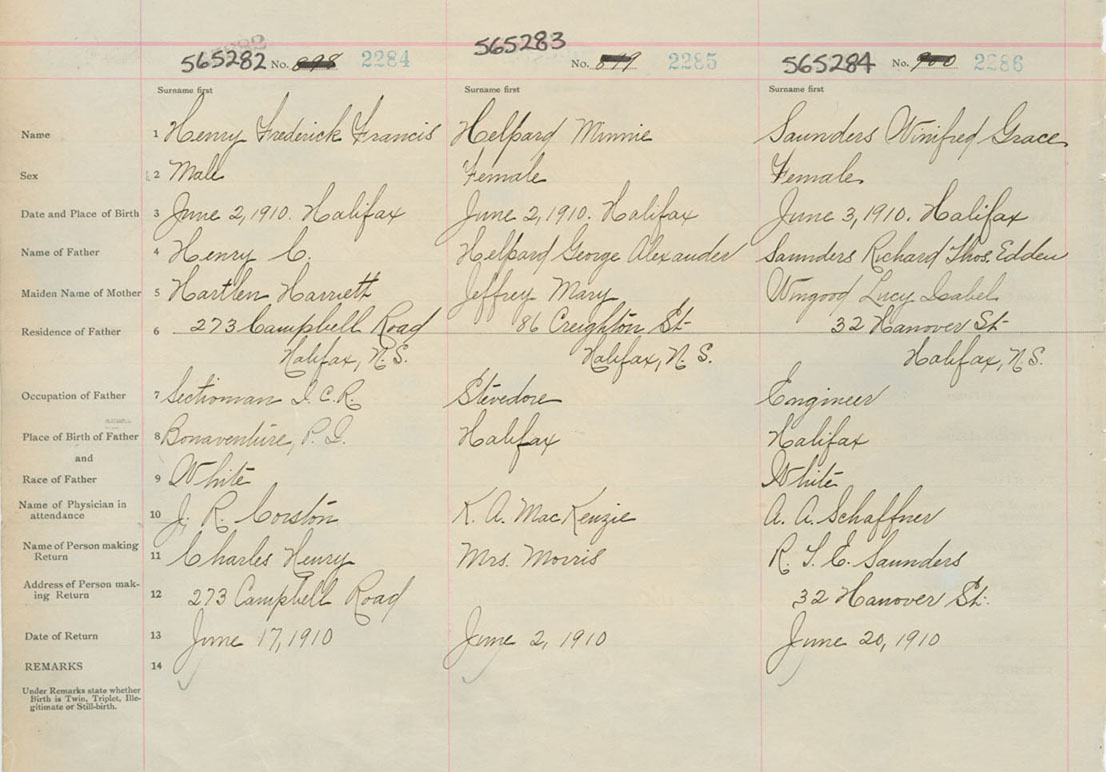 565282 No. 898 2284 565283 No. 899 2285 565284 No. 900 2286
Surname first Surname first Surname first
Name 1 Henry Frederick Francis Helpard Minnie Saunders Winifred Grace
Sex 2 Male Female Female
Date and Place of Birth 3 June 2, 1910. Halifax June 2, 1910. Halifax June 3, 1910. Halifax
Name of Father 4 Henry C. Helpard George Alexander Saunders Richard Thos. Edden
Maiden Name of Mother 5 Hartlen Harriett Jeffrey Mary Wingood Lucy Isabel
Residence of Father 6 273 Campbell Road 86 Creighton St. 32 Hanover St.
Halifax, N.S. Halifax, N.S. Halifax, N.S.
Occupation of Father 7 Sectionman I.C.R. Stevedore Engineer
Place of Birth of Father 8 Bonaventure, P.I. Halifax Halifax
and
Race of Father 9 White White
Name of Physician in
attendance 10 J. R. Corston K. A. MacKenzie A. A. Schaffner
Name of Person making
Return 11 Charles Henry Mrs. Morris R. T. E. Saunders
Address of Person mak-
ing Return 12 273 Campbell Road 32 Hanover St.
Date of Return 13 June 17, 1910 June 2, 1910 June 20, 1910
REMARKS 14
Under Remarks state whether
Birth is Twin, Triplet, Ille-
gitimate or Still-birth.